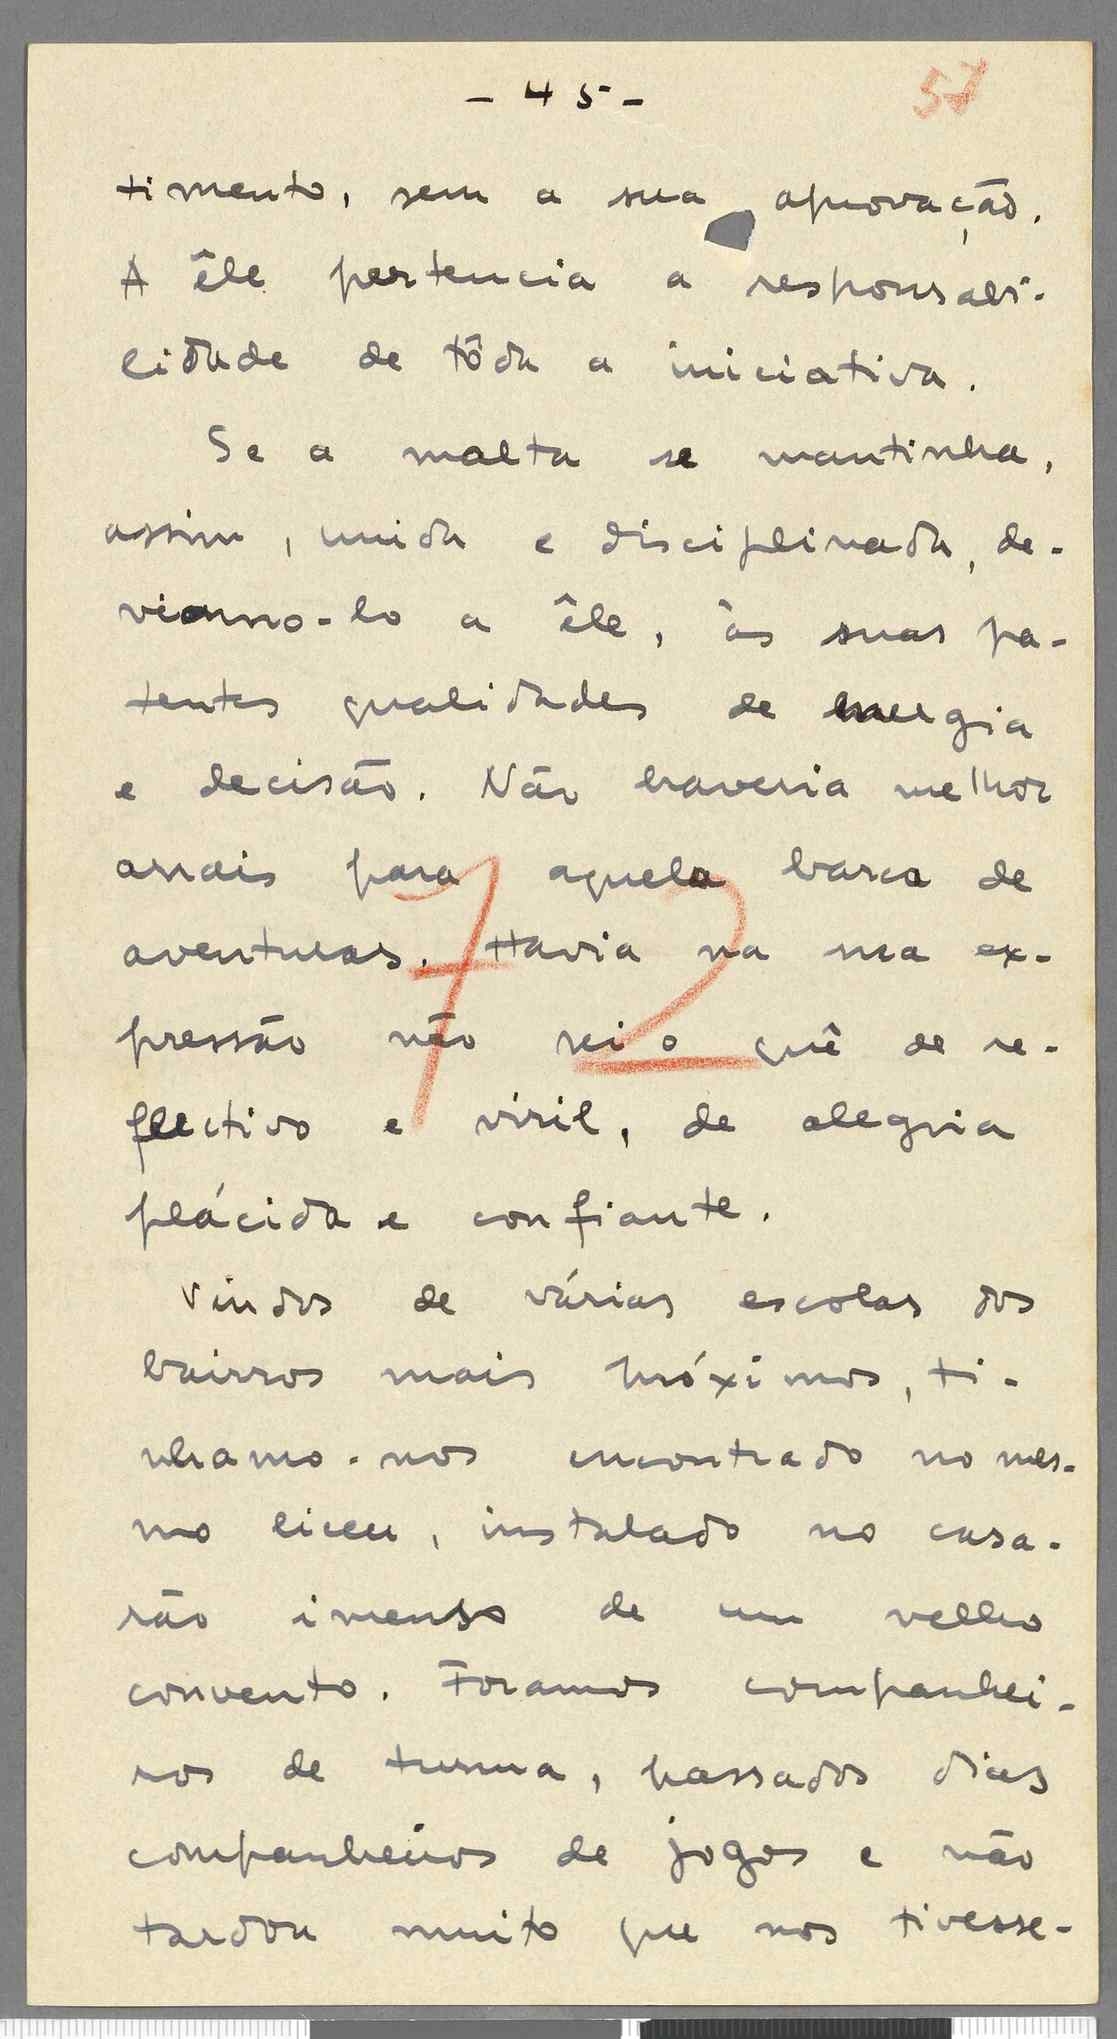 - 45 -
57
timento, sem a sua aprovação.
A êle pertencia a responsabi-
lidade de tôda a iniciativa.
Se a malta se mantinha,
assim, unida e disciplinada, de-
viamo-lo a êle, às suas pa-
tentes qualidades de energia
e decisão. Não haveria melhor
arrais para aquela barca de
aventuras. Havia na sua ex-
pressão não sei o quê de re-
flectivo e viril, de alegria
plácida e confiante.
72
Vindos de várias escolas dos
bairros mais próximos, ti-
nhamo-nos encontrado no mes-
mo liceu, instalado no casa-
rão imenso de um velho
convento. Foramos companhei-
ros de turma, passados dias
companheiros de jogos e não
tardou muito que nos tivesse-